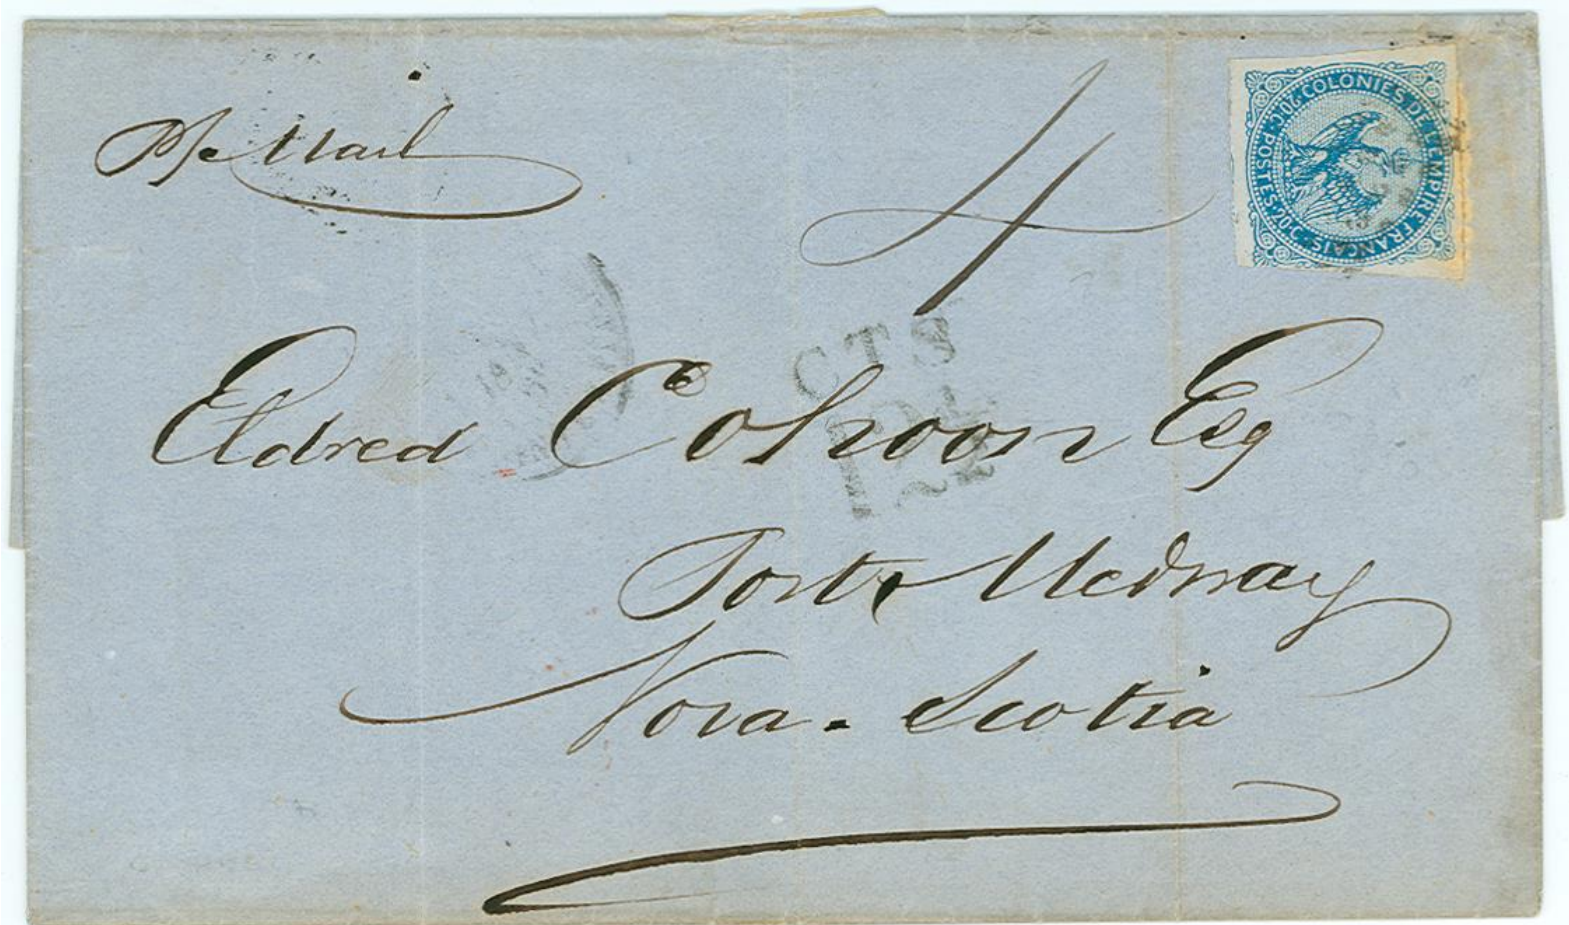 Pr Mail
4
COLONIES DE L'EMPIRE FRANÇAIS · 20C · POSTES · 20C ·
CTS
12½
Eldred Cohoon Esq
Port Medway
Nova - Scotia